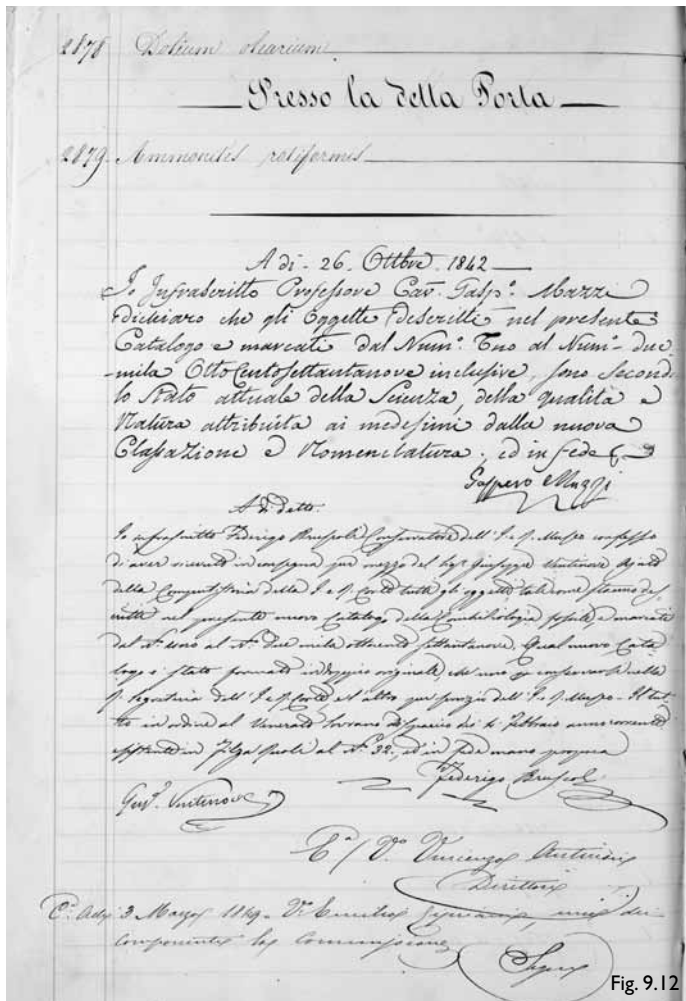 2878 Dolium olearium
Presso la della Porta
2879. Ammonites rotiformis
A dì - 26. Ottbre. 1842
Io Infrascritto Professore Cav. Gasp.º Mazzi
dichiaro che gli Oggetti descritti nel presente
Catalogo e marcati dal Num.º Uno al Num.º due-
-mila Ottocentosettantanove inclusive, sono secondo
lo Stato attuale della Scienza, della qualità e
Natura attribuita ai medesimi dalla nuova
Classazione e Nomenclatura. ed in fede
Gaspero Mazzi
A dì detto.
Io infrascritto Federigo Bruscoli Conservatore dell' I. e R. Museo confesso
di aver ricevuto in consegna per mezzo del Sigr. Giuseppe Ajuto
della Computisteria della I. e R. Corte tutti gli oggetti tali come stanno des-
critti nel presente nuovo Catalogo della Conchiliologia fossile, e marcati
dal N.º uno al N.º due mila ottocento settantanove. Qual nuovo Cata-
logo è stato formato in doppio originale, che uno per conservarsi nella
R. Segreteria dell' I. e R. Corte, e l' altro per servizio dell' I. e R. Museo - Il tut-
to in ordine al Venerato Sovrano Dispaccio de' Febbraio anno corrente
esistente in Filza al N.º 32. ed in fede mano propria
Federigo Bruscoli
Vincenzo Antinori
Direttore
3 Marzo 1849. Emilio uno dei
componenti la Commissione
Fig. 9.12